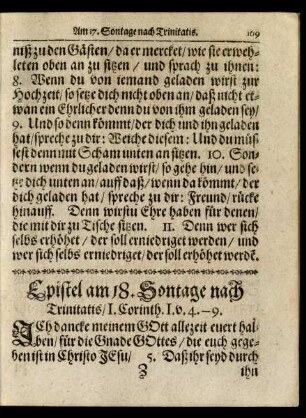 Am 17. Sontage nach Trinitatis. 109
niß zu den Gästen / da er mercket / wie sie erweh-
leten oben an zu sitzen / und sprach zu ihnen:
8. Wenn du von iemand geladen wirst zur
Hochzeit / so setze dich nicht oben an / daß nicht et-
wan ein Ehrlicher denn du von ihm geladen sey /
9. Und so denn kömmt / der dich und ihn geladen
hat / spreche zu dir: Weiche diesem: Und du müs-
sest denn mit Scham unten an sitzen. 10. Son-
dern wenn du geladen wirst / so gehe hin / und se-
tze dich unten an / auff daß / wenn da kömmt / der
dich geladen hat / spreche zu dir: Freund / rücke
hinauff. Denn wirstu Ehre haben für denen /
die mit dir zu Tische sitzen. 11. Denn wer sich
selbs erhöhet / der soll erniedriget werden / und
wer sich selbs erniedriget / der soll erhöhet werdẽ.
Epistel am 18. Sontage nach
Trinitatis / I. Corinth. I. v. 4.–9.
ICh dancke meinem GOtt allezeit euert hal-
ben / für die Gnade GOttes / die euch gege-
ben ist in Christo JEsu / 5. Daß ihr seyd durch
3 ihn